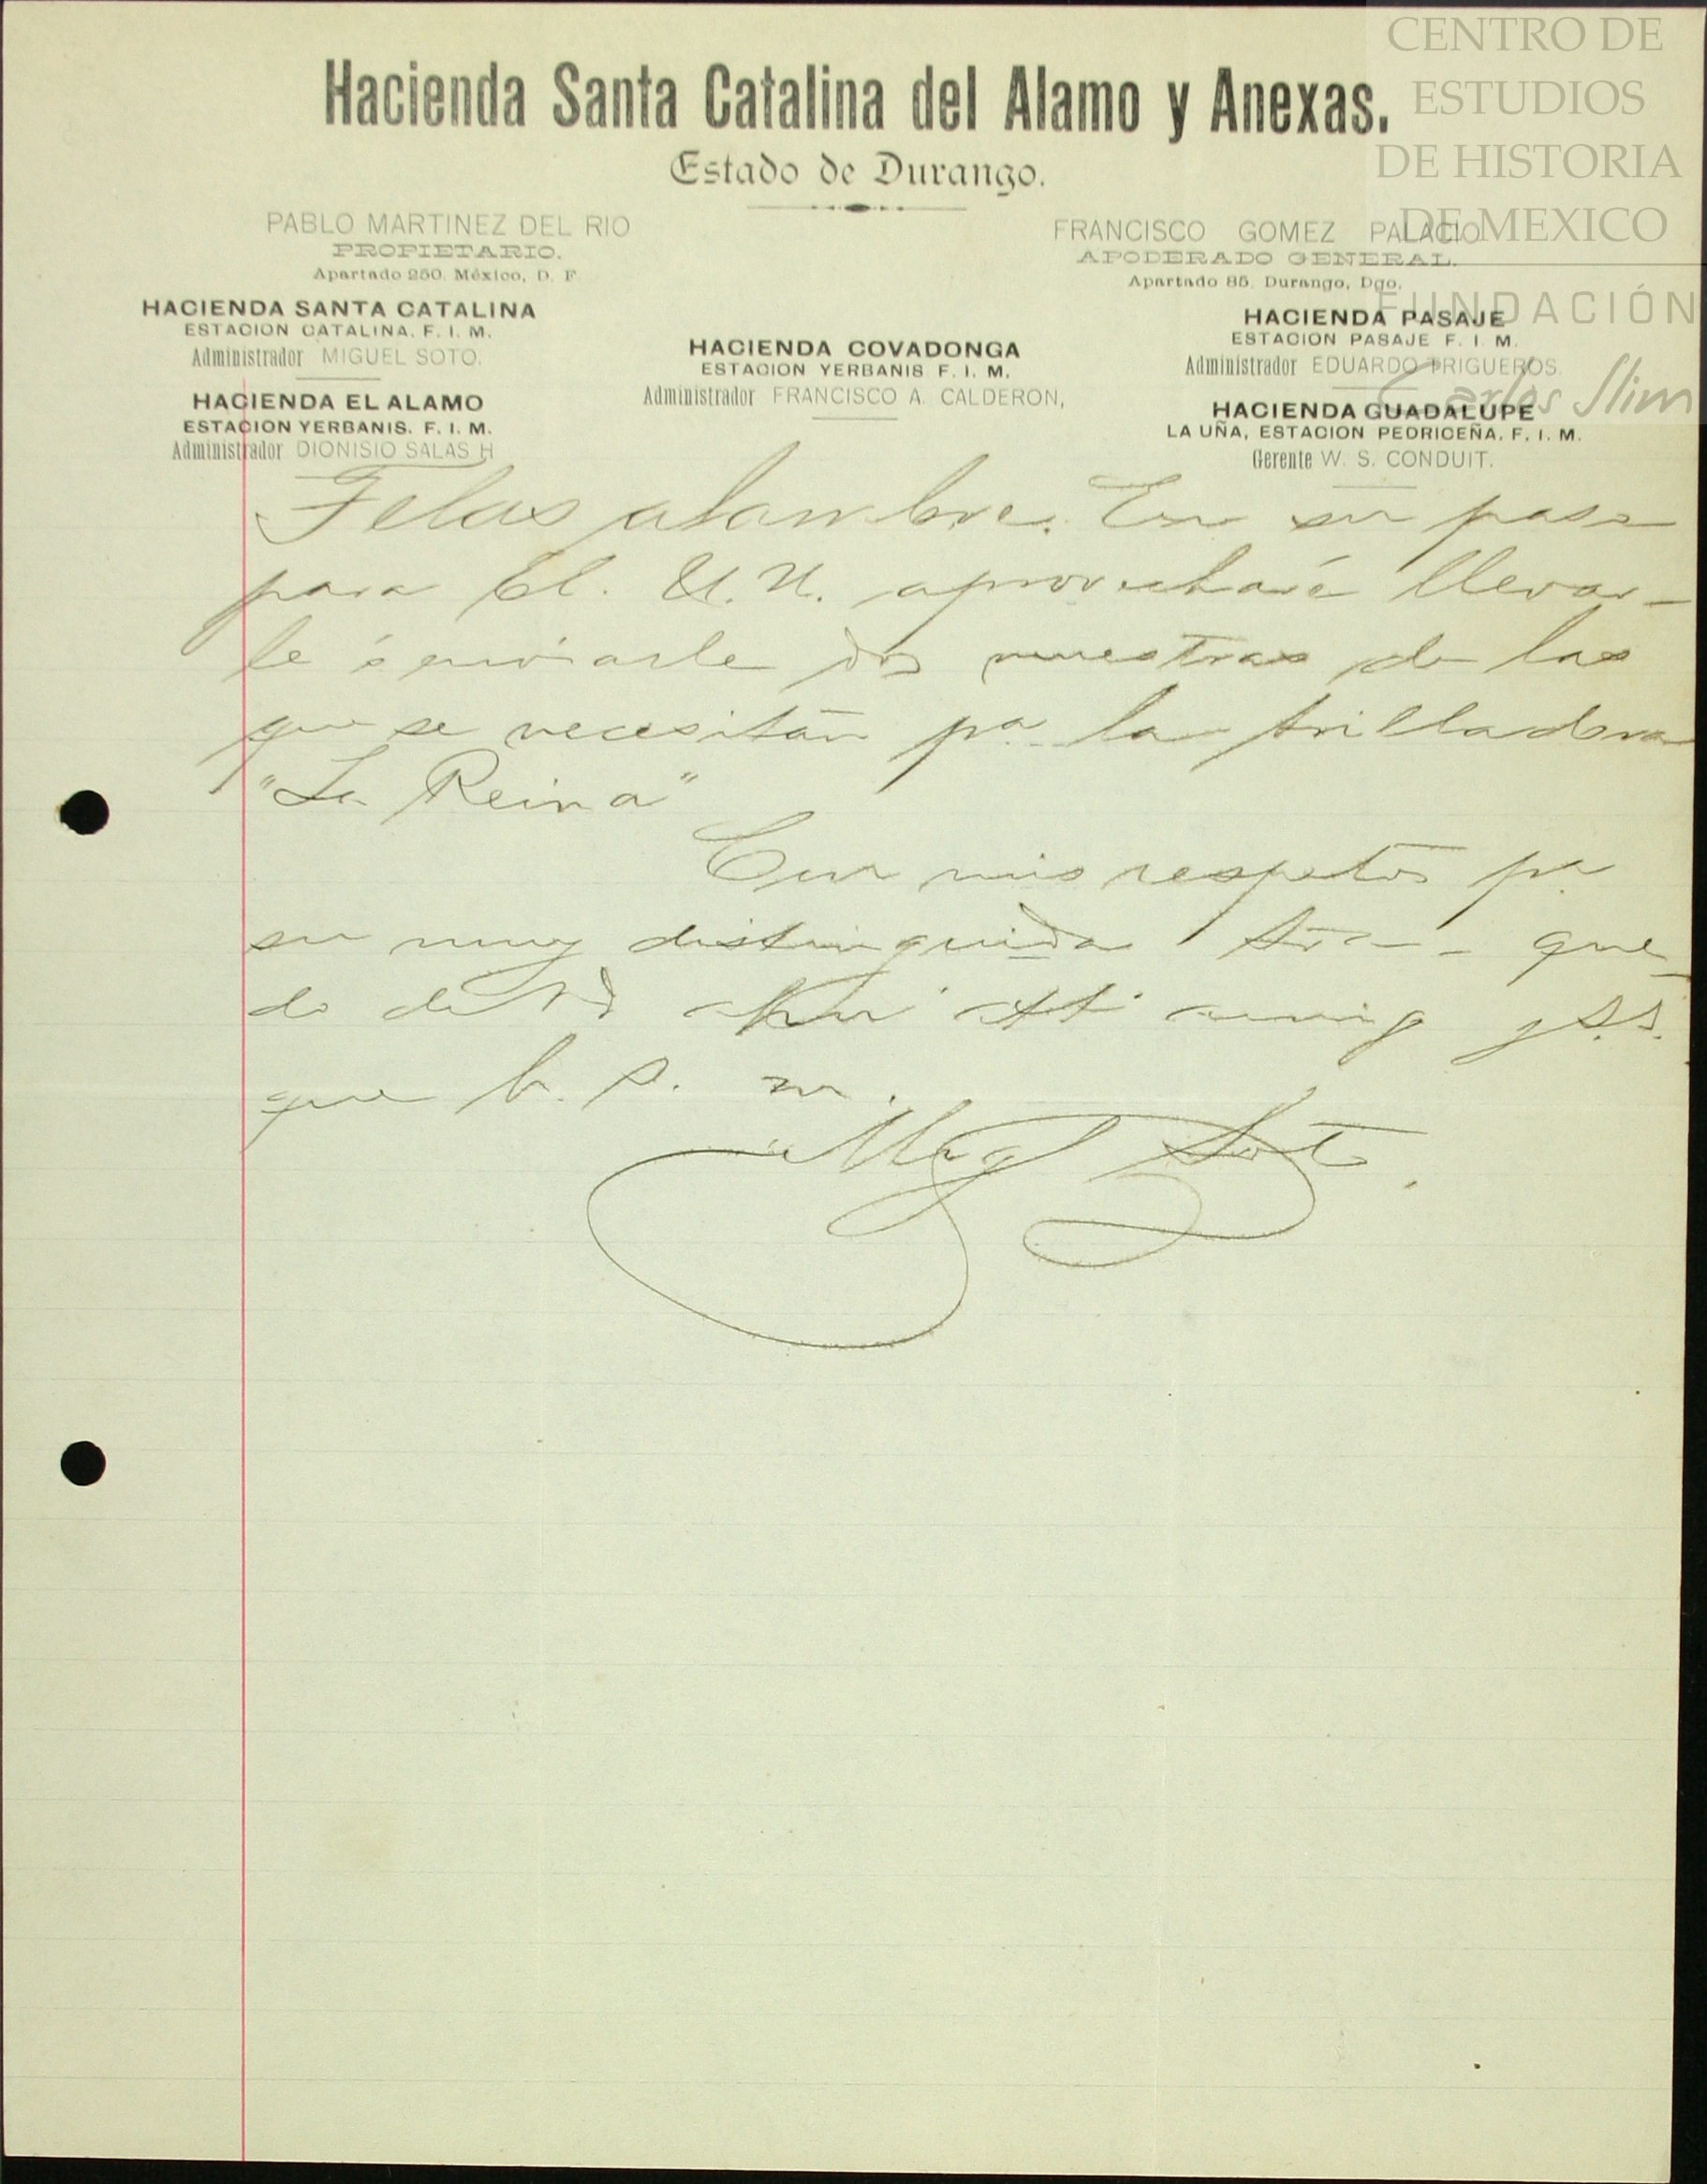 CENTRO DE
ESTUDIOS
DE HISTORIA
DE MEXICO
FUNDACIÓN
Carlos Slim
Hacienda Santa Catalina del Alamo y Anexas.
Estado de Durango.
PABLO MARTINEZ DEL RIO
PROPIETARIO.
Apartado 250. México, D. F.
FRANCISCO GOMEZ PALACIO
APODERADO GENERAL.
Apartado 85. Durango, Dgo.
HACIENDA SANTA CATALINA
ESTACION CATALINA. F. I. M.
Administrador MIGUEL SOTO.
HACIENDA EL ALAMO
ESTACION YERBANIS. F. I. M.
Administrador DIONISIO SALAS H
HACIENDA COVADONGA
ESTACION YERBANIS F. I. M.
Administrador FRANCISCO A. CALDERON,
HACIENDA PASAJE
ESTACION PASAJE F. I. M.
Administrador EDUARDO TRIGUEROS.
HACIENDA GUADALUPE
LA UÑA, ESTACION PEDRICEÑA. F. I. M.
Gerente W. S. CONDUIT.
Telas alambre. En su paso
para E. U. aprovecharé llevar-
le ó enviarle dos muestras de las
que se necesitan pa. la trilladora
"La Reina"
Con mis respetos pa
su muy distinguida Sra- que-
do de Ud atto amig y S.S.
que b. s. m.
Migl Soto.